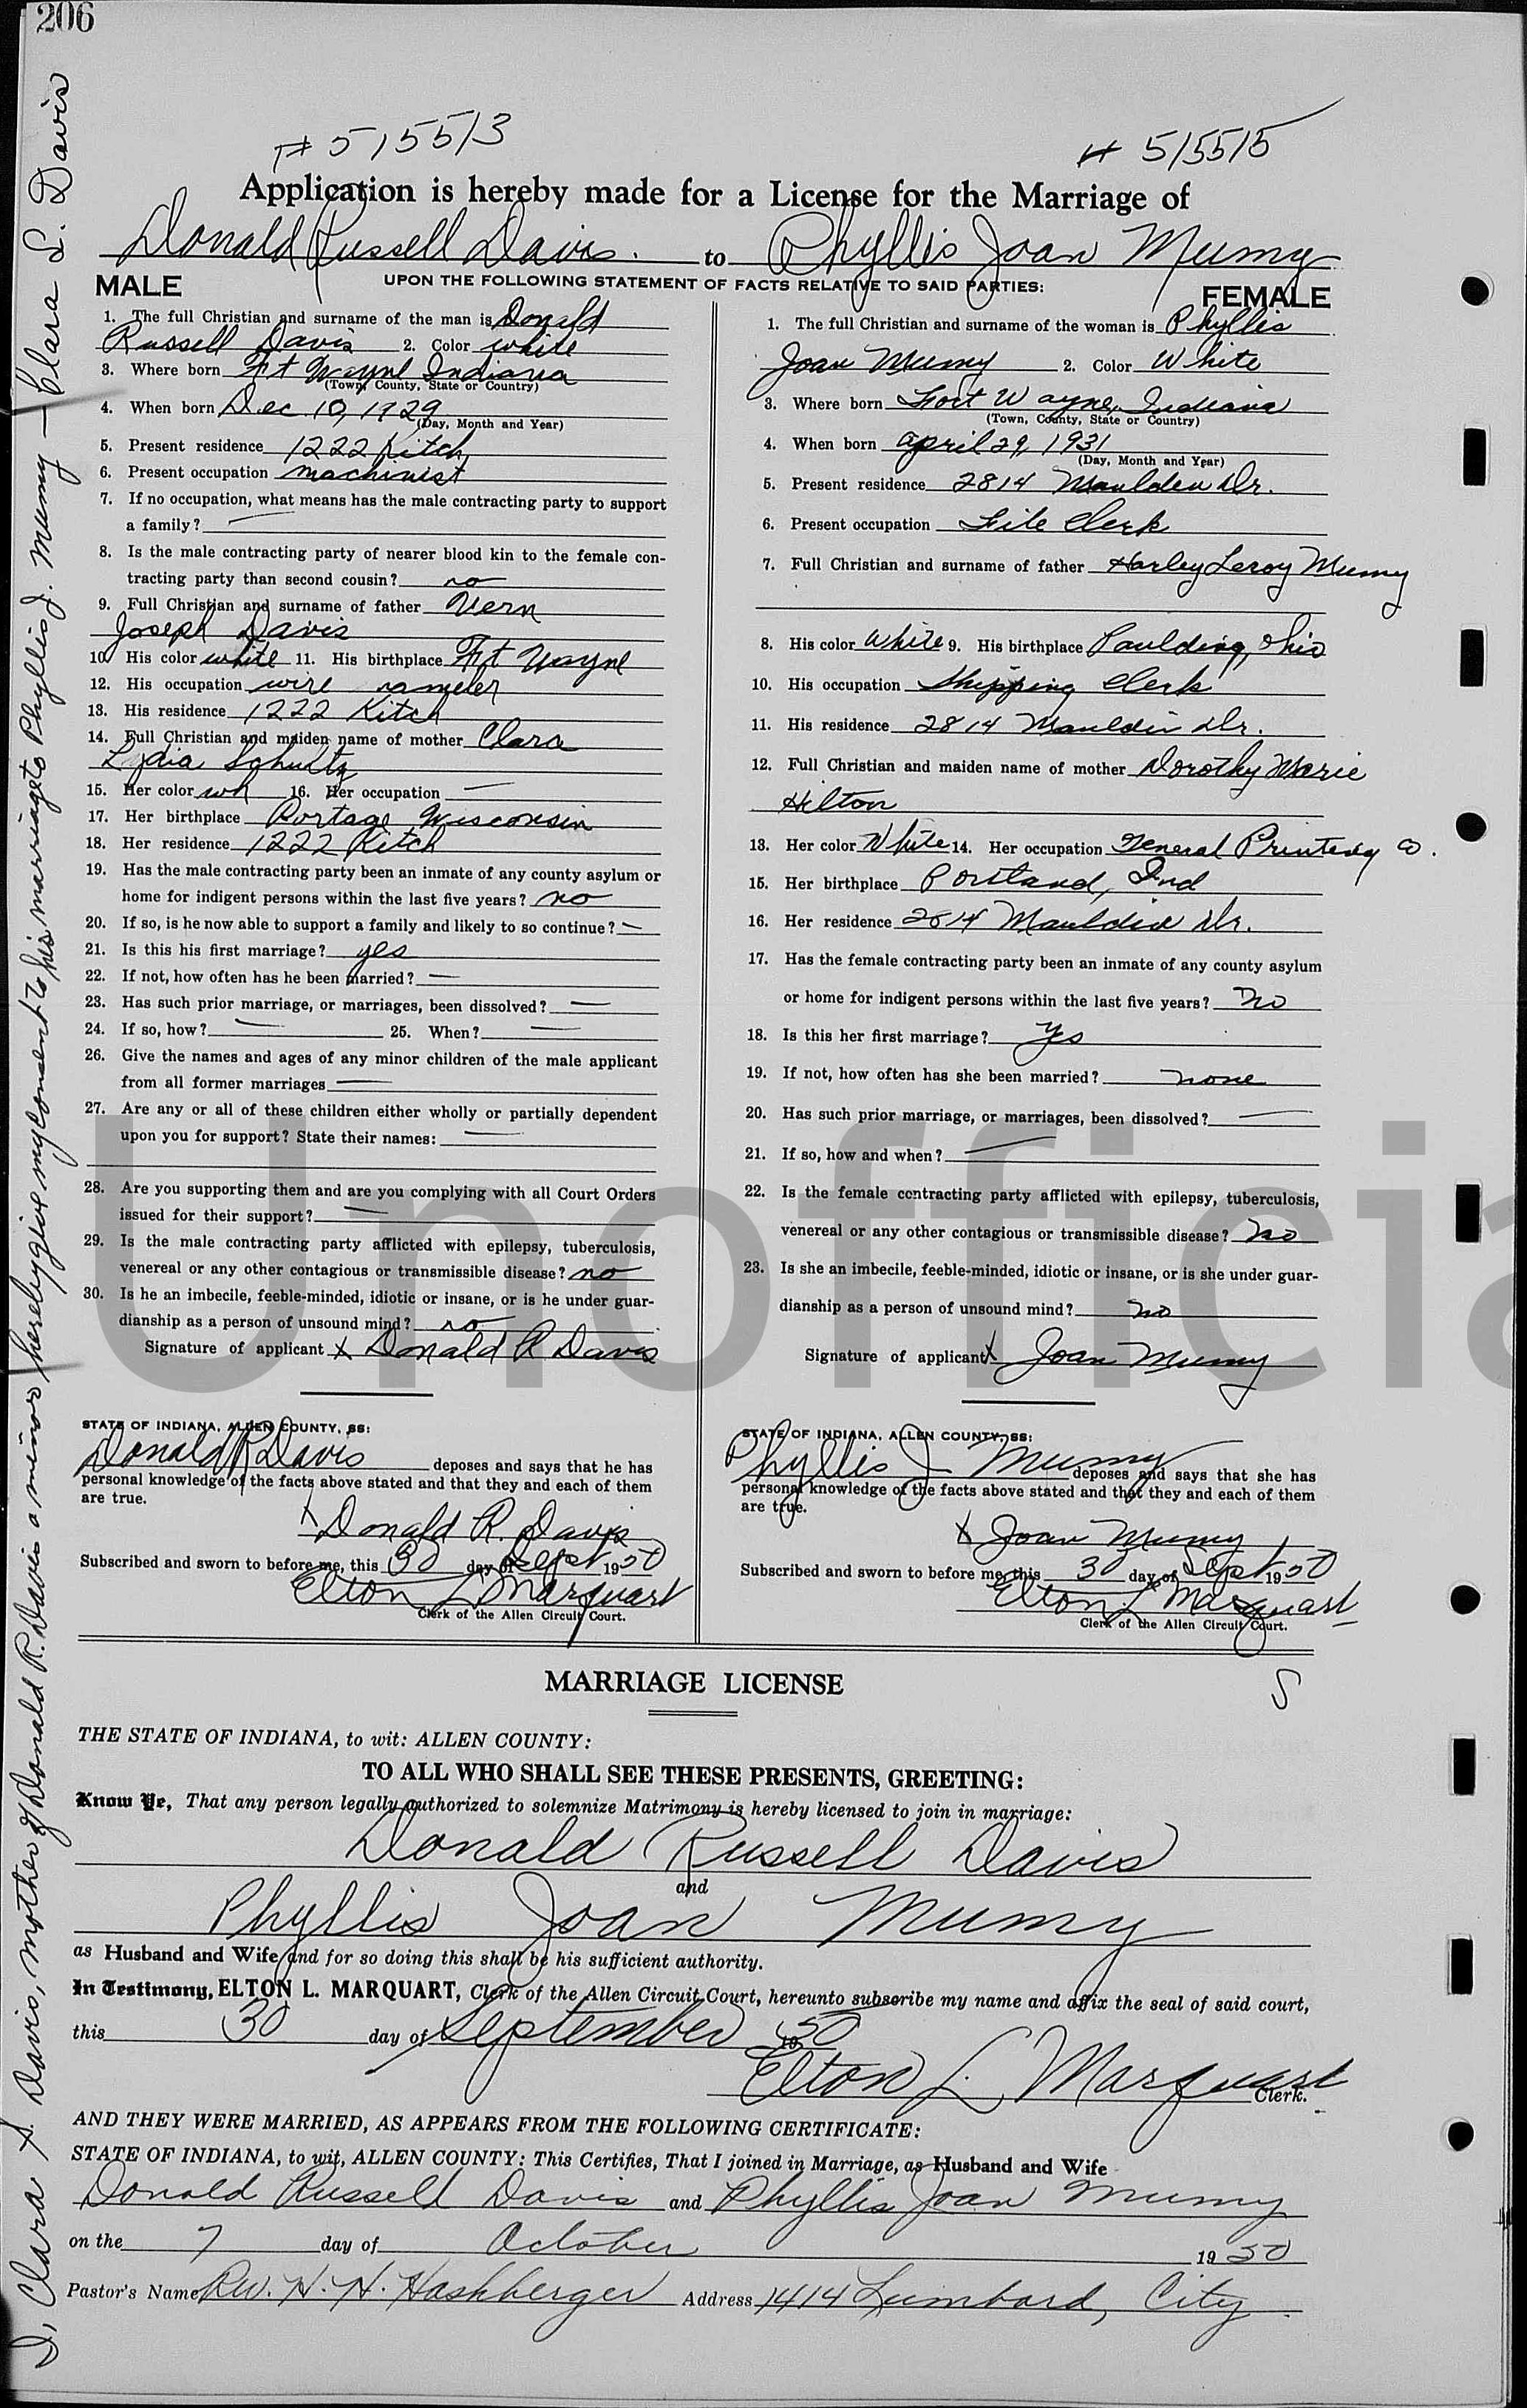 206
# 515513
# 515515
Application is hereby made for a License for the Marriage of
Donald Russell Davis. to Phyllis Joan Mumy
UPON THE FOLLOWING STATEMENT OF FACTS RELATIVE TO SAID PARTIES:
MALE
1. The full Christian and surname of the man is Donald
Russell Davis 2. Color white
3. Where born Ft Wayne Indiana
(Town, County, State or Country)
4. When born Dec 10, 1929
(Day, Month and Year)
5. Present residence 1222 Kitch
6. Present occupation machinist
7. If no occupation, what means has the male contracting party to support
a family? —
8. Is the male contracting party of nearer blood kin to the female con-
tracting party than second cousin? no
9. Full Christian and surname of father Vern
Joseph Davis
10. His color white 11. His birthplace Ft Wayne
12. His occupation wire
13. His residence 1222 Kitch
14. Full Christian and maiden name of mother Clara
Lydia Schultz
15. Her color wh 16. Her occupation —
17. Her birthplace Portage Wisconsin
18. Her residence 1222 Kitch
19. Has the male contracting party been an inmate of any county asylum or
home for indigent persons within the last five years? no
20. If so, is he now able to support a family and likely to so continue? —
21. Is this his first marriage? yes
22. If not, how often has he been married? —
23. Has such prior marriage, or marriages, been dissolved? —
24. If so, how? — 25. When? —
26. Give the names and ages of any minor children of the male applicant
from all former marriages —
27. Are any or all of these children either wholly or partially dependent
upon you for support? State their names: —
28. Are you supporting them and are you complying with all Court Orders
issued for their support? —
29. Is the male contracting party afflicted with epilepsy, tuberculosis,
venereal or any other contagious or transmissible disease? no
30. Is he an imbecile, feeble-minded, idiotic or insane, or is he under guar-
dianship as a person of unsound mind? no
Signature of applicant x Donald R Davis
STATE OF INDIANA, ALLEN COUNTY, SS:
Donald R Davis deposes and says that he has
personal knowledge of the facts above stated and that they and each of them
are true.
x Donald R. Davis
Subscribed and sworn to before me, this 30 day of Sept 1950
Elton L Marquart
Clerk of the Allen Circuit Court.
FEMALE
1. The full Christian and surname of the woman is Phyllis
Joan Mumy 2. Color White
3. Where born Fort Wayne, Indiana
(Town, County, State or Country)
4. When born april 29, 1931
(Day, Month and Year)
5. Present residence 2814 Maulden Dr.
6. Present occupation File Clerk
7. Full Christian and surname of father Harley Leroy Mumy
8. His color White 9. His birthplace Paulding, Ohio
10. His occupation Shipping Clerk
11. His residence 2814 Mauldin Dr.
12. Full Christian and maiden name of mother Dorothy Marie
Hilton
13. Her color White 14. Her occupation General Printing Co.
15. Her birthplace Portland, Ind
16. Her residence 2814 Mauldin Dr.
17. Has the female contracting party been an inmate of any county asylum
or home for indigent persons within the last five years? no
18. Is this her first marriage? yes
19. If not, how often has she been married? none
20. Has such prior marriage, or marriages, been dissolved? —
21. If so, how and when? —
22. Is the female contracting party afflicted with epilepsy, tuberculosis,
venereal or any other contagious or transmissible disease? no
23. Is she an imbecile, feeble-minded, idiotic or insane, or is she under guar-
dianship as a person of unsound mind? no
Signature of applicant x Joan Mumy
STATE OF INDIANA, ALLEN COUNTY, SS:
Phyllis J Mumy deposes and says that she has
personal knowledge of the facts above stated and that they and each of them
are true.
x Joan Mumy
Subscribed and sworn to before me, this 30 day of Sept 1950
Elton L Marquart
Clerk of the Allen Circuit Court.
MARRIAGE LICENSE
S
THE STATE OF INDIANA, to wit: ALLEN COUNTY:
TO ALL WHO SHALL SEE THESE PRESENTS, GREETING:
Know Ye, That any person legally authorized to solemnize Matrimony is hereby licensed to join in marriage:
Donald Russell Davis
and
Phyllis Joan Mumy
as Husband and Wife and for so doing this shall be his sufficient authority.
In Testimony, ELTON L. MARQUART, Clerk of the Allen Circuit Court, hereunto subscribe my name and affix the seal of said court,
this 30 day of September 1950
Elton L. Marquart
Clerk.
AND THEY WERE MARRIED, AS APPEARS FROM THE FOLLOWING CERTIFICATE:
STATE OF INDIANA, to wit, ALLEN COUNTY: This Certifies, That I joined in Marriage, as Husband and Wife
Donald Russell Davis and Phyllis Joan Mumy
on the 7 day of October 1950
Pastor's Name Rev. H. H. Hashberger Address 1414 Lumbard, City
I, Clara S. Davis, mother of Donald R. Davis a minor hereby give my consent to his marriage to Phyllis J. Mumy — Clara L. Davis
Unofficia